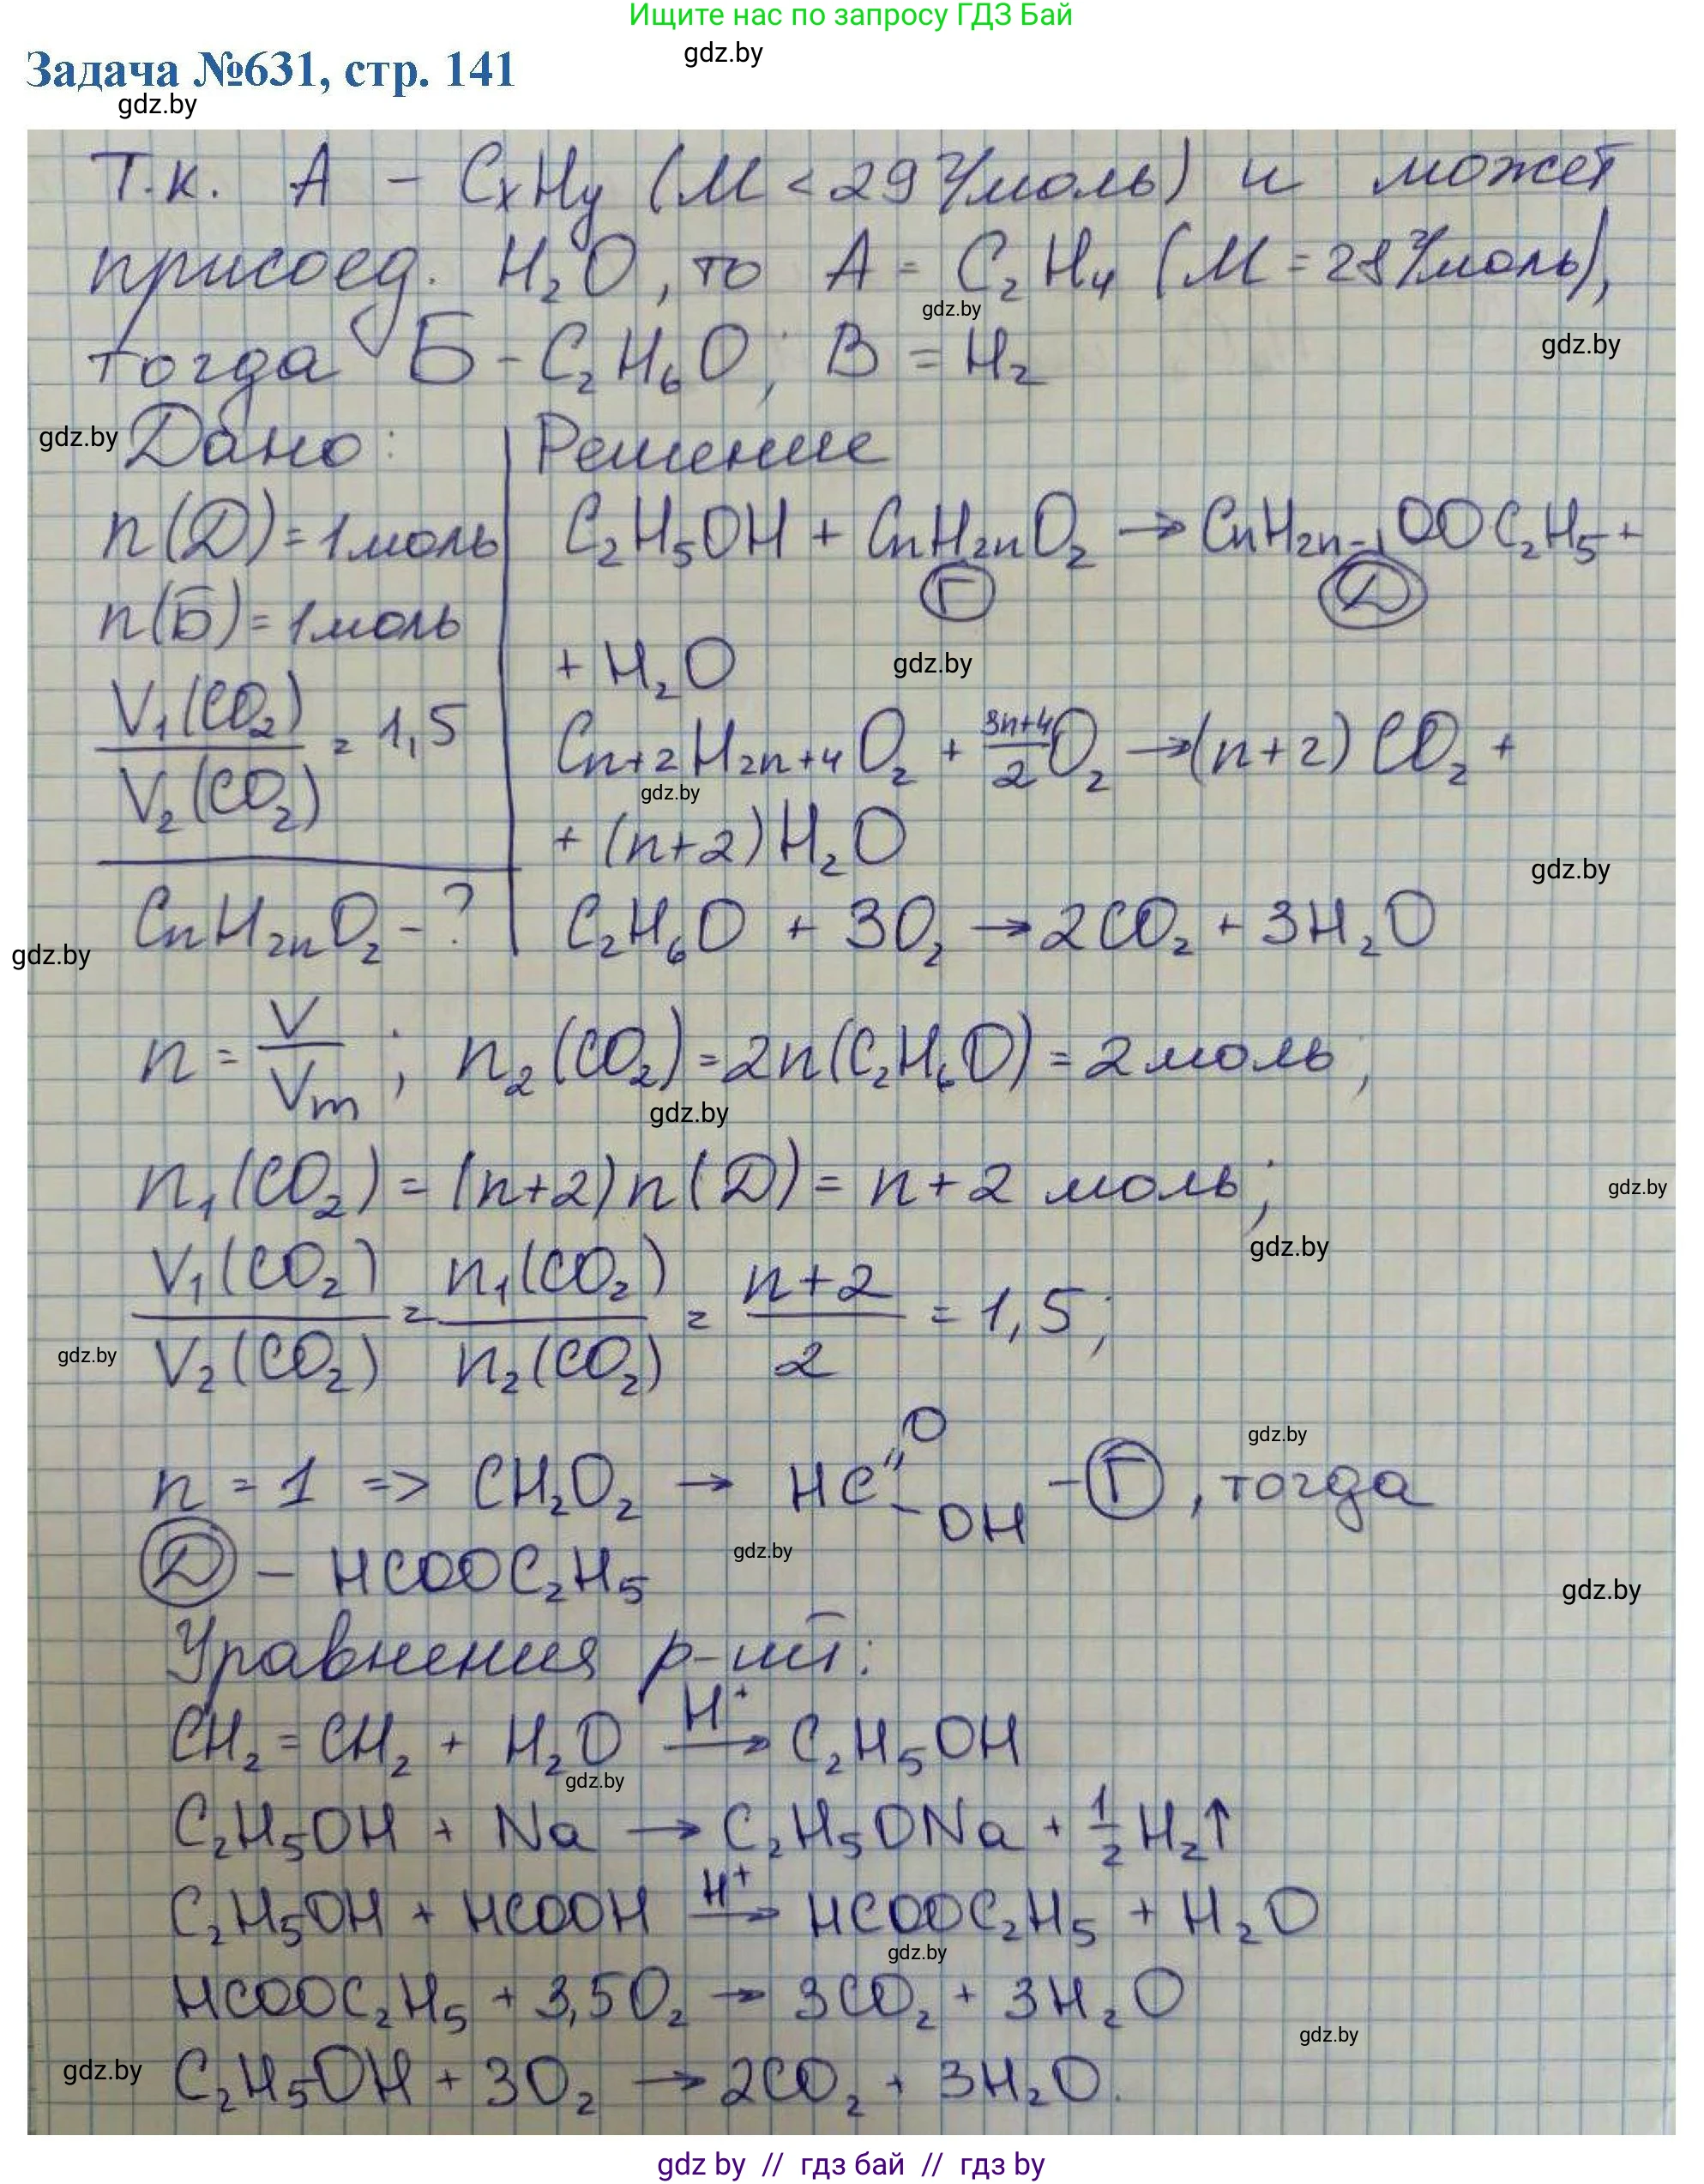 Ищите нас по запросу ГДЗ Бай
gdz.by
Задача №631, стр. 141
gdz.by
Т.к. А – CxHy (M < 29 г/моль) и может
присоед. H₂O, то А = C₂H₄ (M = 28 г/моль),
gdz.by
тогда Б – C₂H₆O; В = H₂
gdz.by
gdz.by
Дано: Решение
n(Д) = 1 моль C₂H₅OH + CnH₂nO₂ → CnH₂n-1OOC₂H₅ +
Г Д
n(Б) = 1 моль
+ H₂O
gdz.by
V₁(CO₂)/V₂(CO₂) = 1,5
Cn+2H2n+4O₂ + (3n+4)/2 O₂ → (n+2) CO₂ +
gdz.by
+ (n+2) H₂O
gdz.by
CnH₂nO₂ – ? C₂H₆O + 3O₂ → 2CO₂ + 3H₂O
gdz.by
n = V/Vm; n₂(CO₂) = 2n(C₂H₆O) = 2 моль;
gdz.by
n₁(CO₂) = (n+2)n(Д) = n+2 моль;
gdz.by
gdz.by
V₁(CO₂)/V₂(CO₂) = n₁(CO₂)/n₂(CO₂) = (n+2)/2 = 1,5;
gdz.by
gdz.by
n = 1 => CH₂O₂ → HC=O–OH – Г, тогда
gdz.by
Д – HCOOC₂H₅
gdz.by
Уравнения р-ий:
CH₂=CH₂ + H₂O →(H⁺) C₂H₅OH
gdz.by
C₂H₅OH + Na → C₂H₅ONa + ½H₂↑
C₂H₅OH + HCOOH →(H⁺) HCOOC₂H₅ + H₂O
gdz.by
HCOOC₂H₅ + 3,5O₂ → 3CO₂ + 3H₂O
gdz.by
gdz.by
C₂H₅OH + 3O₂ → 2CO₂ + 3H₂O.
gdz by // гдз бай // гдз by